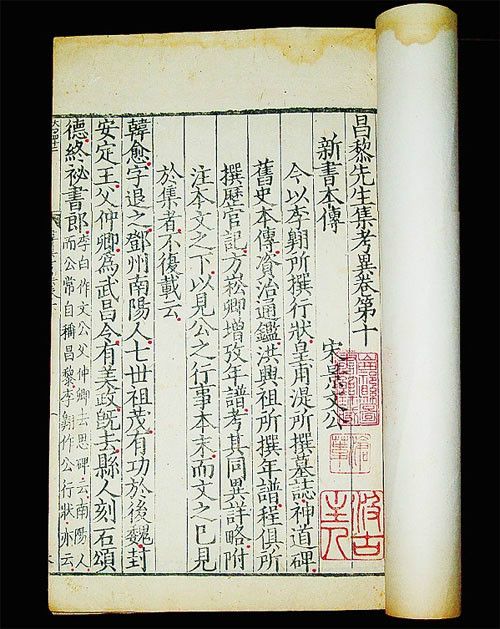 昌黎先生集考異卷第十
新書本傳
宋景文公
今以李翺所撰行狀皇甫湜所撰墓誌神道碑
舊史本傳資治通鑑洪興祖所撰年譜程俱所
撰歷官記方崧卿增攷年譜考其同異詳略附
注本文之下以見公之行事本末而文之已見
於集者不復載云
韓愈字退之鄧州南陽人七世祖茂有功於後魏封
安定王父仲卿爲武昌令有美政既去縣人刻石頌
德終祕書郎李白作文公父仲卿去思碑云南陽人
而公常自稱昌黎李翺作公行狀亦云
汲古主人